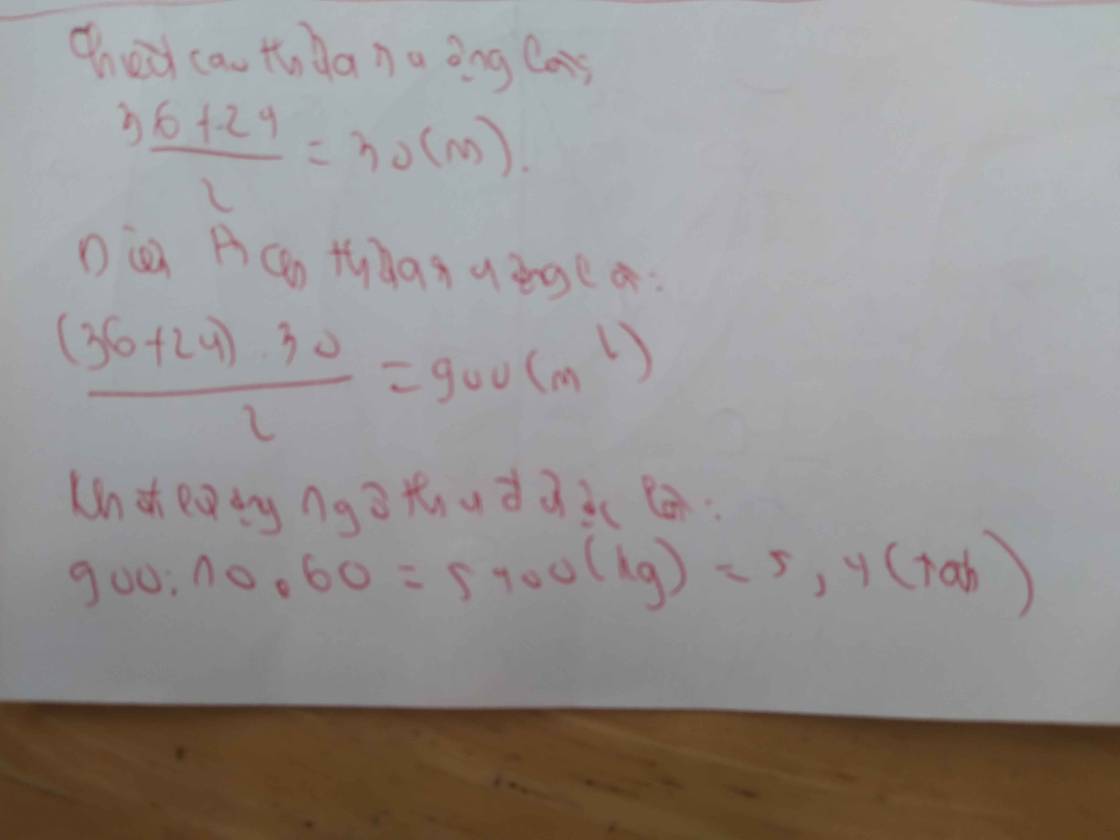 Chiều cao thửa ruộng là:
36+24 / 2 = 30 (m).
Diện tích thửa ruộng là:
(36+24) . 30 / 2 = 900 (m²)
Khối lượng ngô thu được là:
900 : 10 . 60 = 5400 (kg) = 5,4 (tấn)